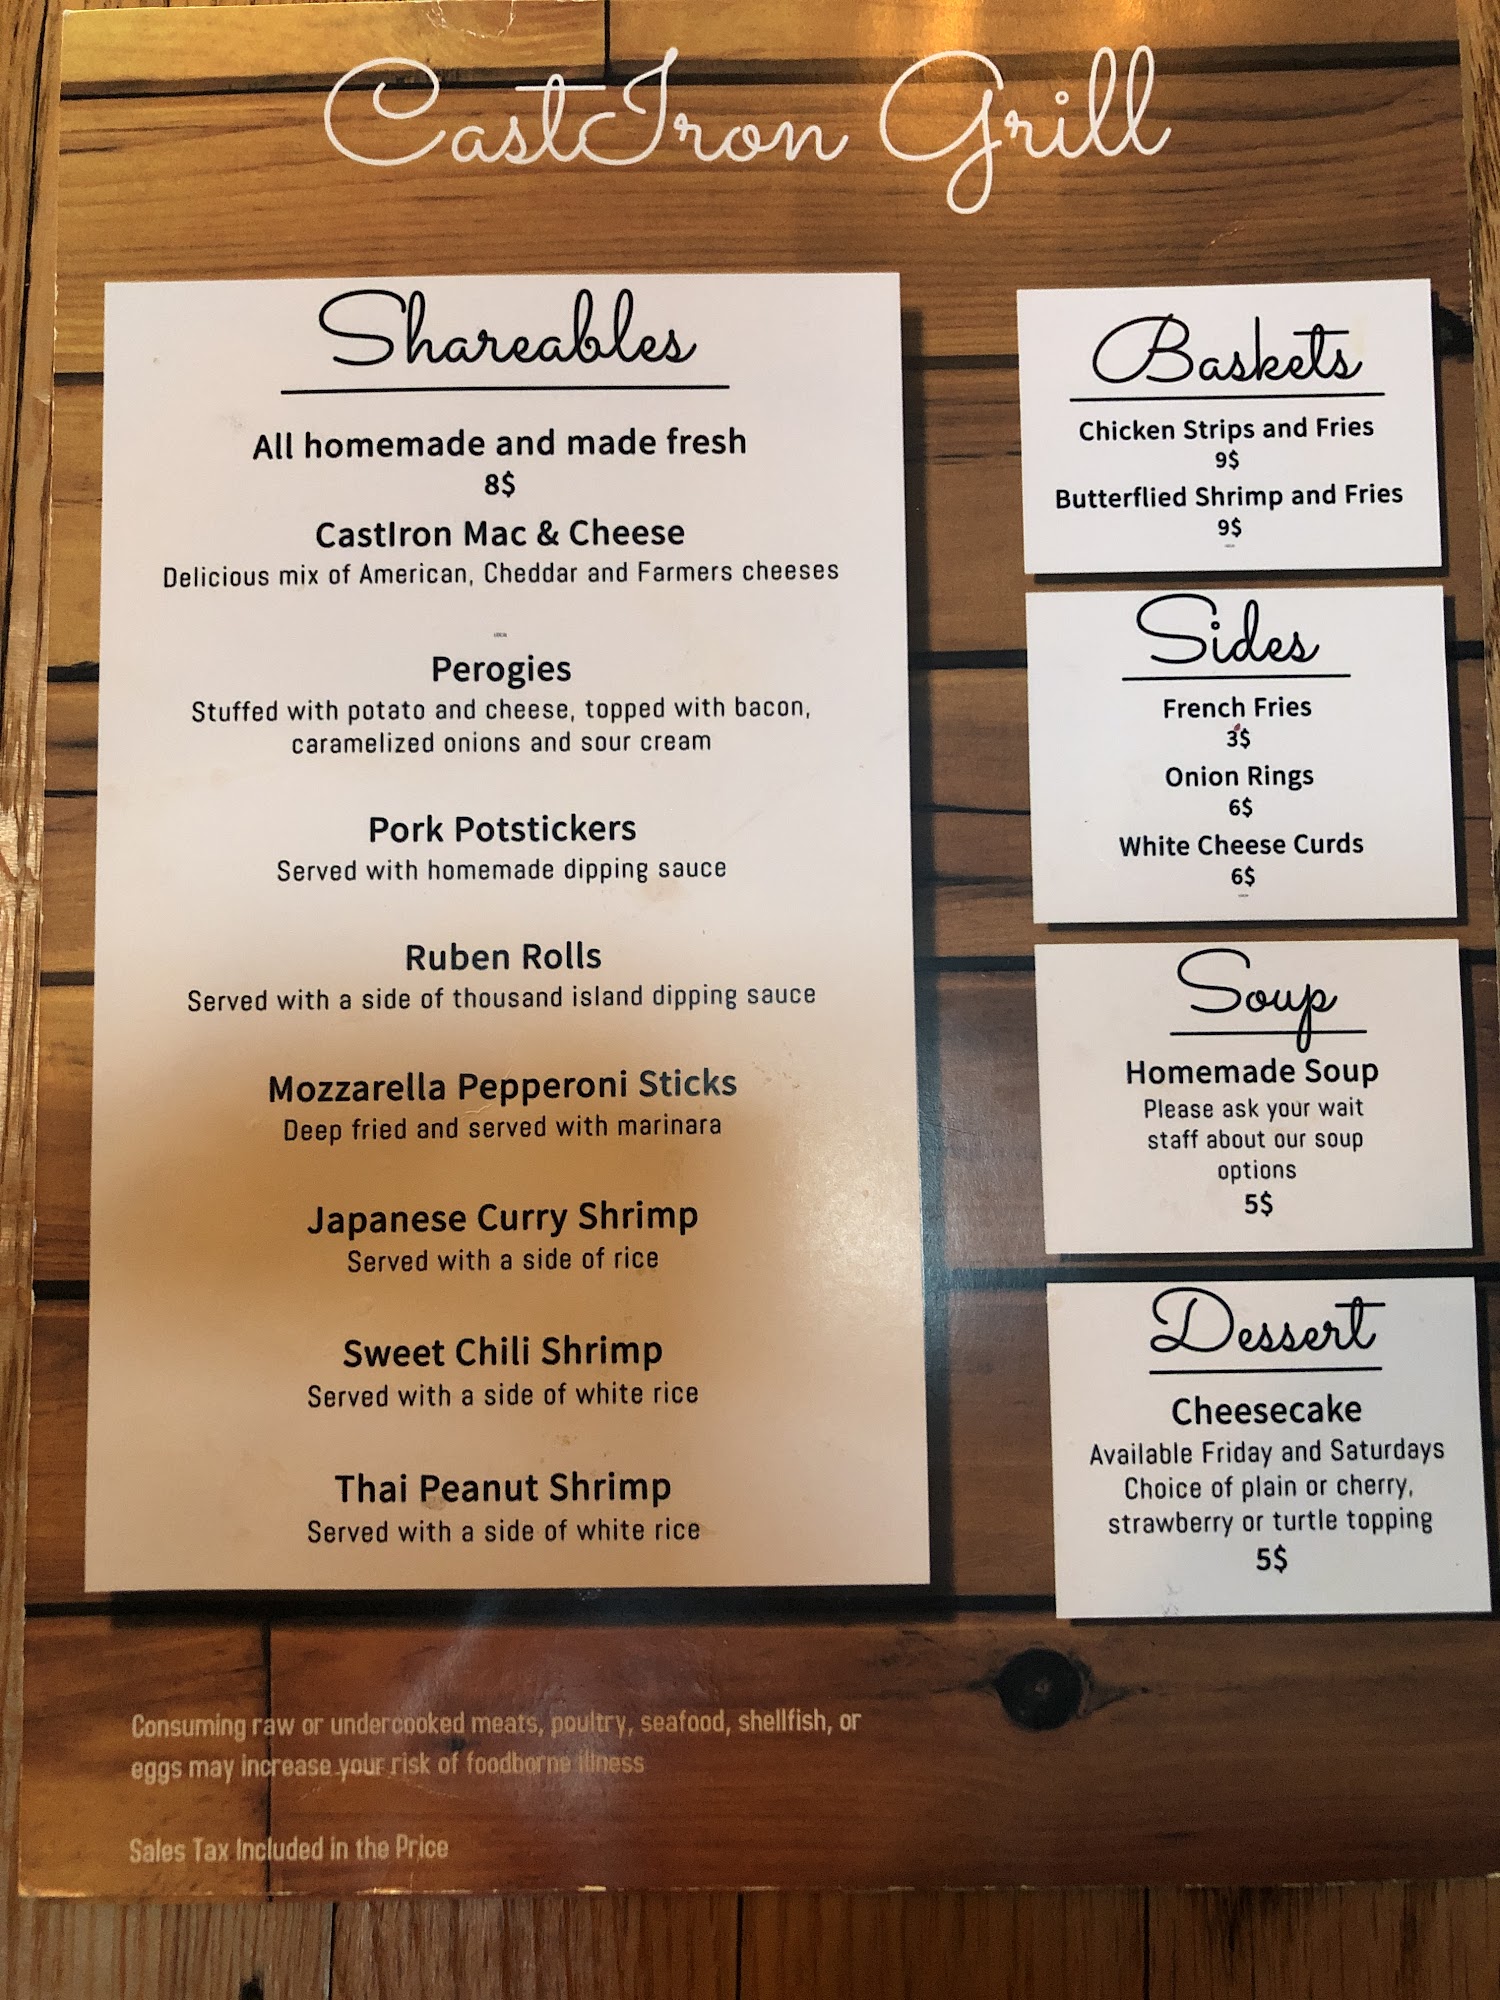 CastIron Grill
Shareables
All homemade and made fresh
8$
CastIron Mac & Cheese
Delicious mix of American, Cheddar and Farmers cheeses
LOCAL
Perogies
Stuffed with potato and cheese, topped with bacon,
caramelized onions and sour cream
Pork Potstickers
Served with homemade dipping sauce
Ruben Rolls
Served with a side of thousand island dipping sauce
Mozzarella Pepperoni Sticks
Deep fried and served with marinara
Japanese Curry Shrimp
Served with a side of rice
Sweet Chili Shrimp
Served with a side of white rice
Thai Peanut Shrimp
Served with a side of white rice
Baskets
Chicken Strips and Fries
9$
Butterflied Shrimp and Fries
9$
Sides
French Fries
3$
Onion Rings
6$
White Cheese Curds
6$
Soup
Homemade Soup
Please ask your wait
staff about our soup
options
5$
Dessert
Cheesecake
Available Friday and Saturdays
Choice of plain or cherry,
strawberry or turtle topping
5$
Consuming raw or undercooked meats, poultry, seafood, shellfish, or
eggs may increase your risk of foodborne illness
Sales Tax Included in the Price